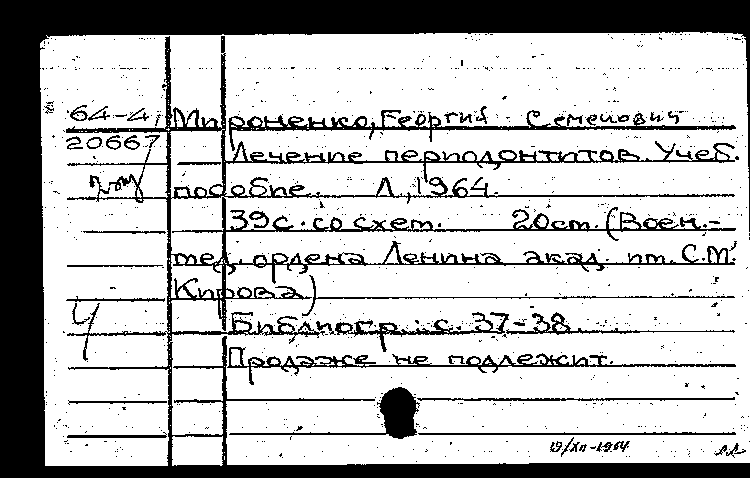 64-4 Мироненко, Георгий Семенович
20667 Лечение периодонтитов. Учеб.
пособие. Л., 1964.
39 с. со схем. 20 см. (Воен.-
мед. ордена Ленина акад. им. С.М.
Кирова)
Библиогр.: с. 37-38.
Продаже не подлежит.
19/XII-1964